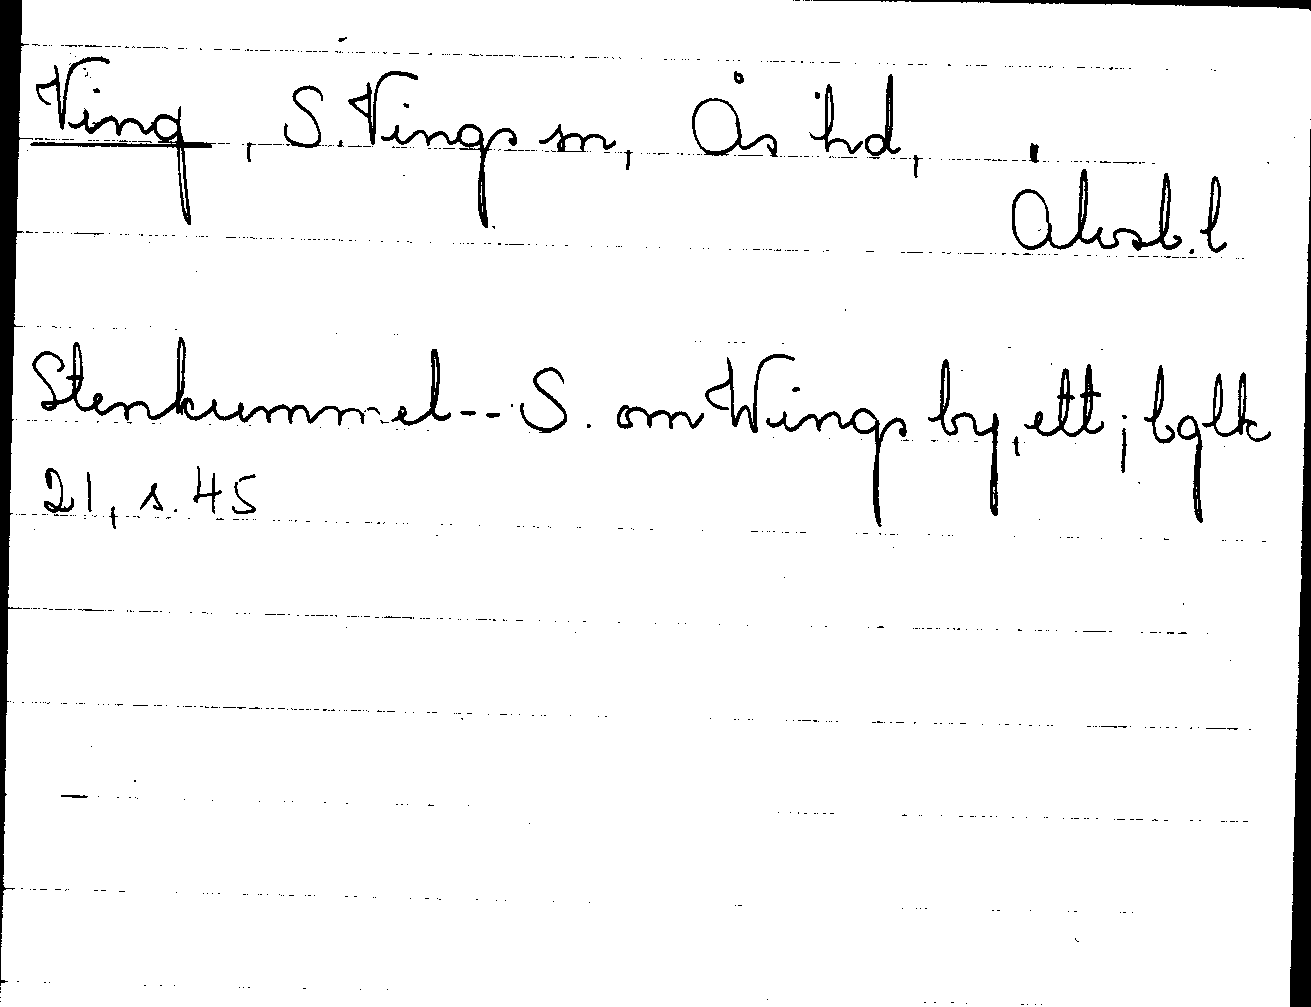 Ving, S. Vings sn, Ås hd,
Älvsb. l
Stenkummel-- S. om Wings by, ett; bglk
21, s. 45